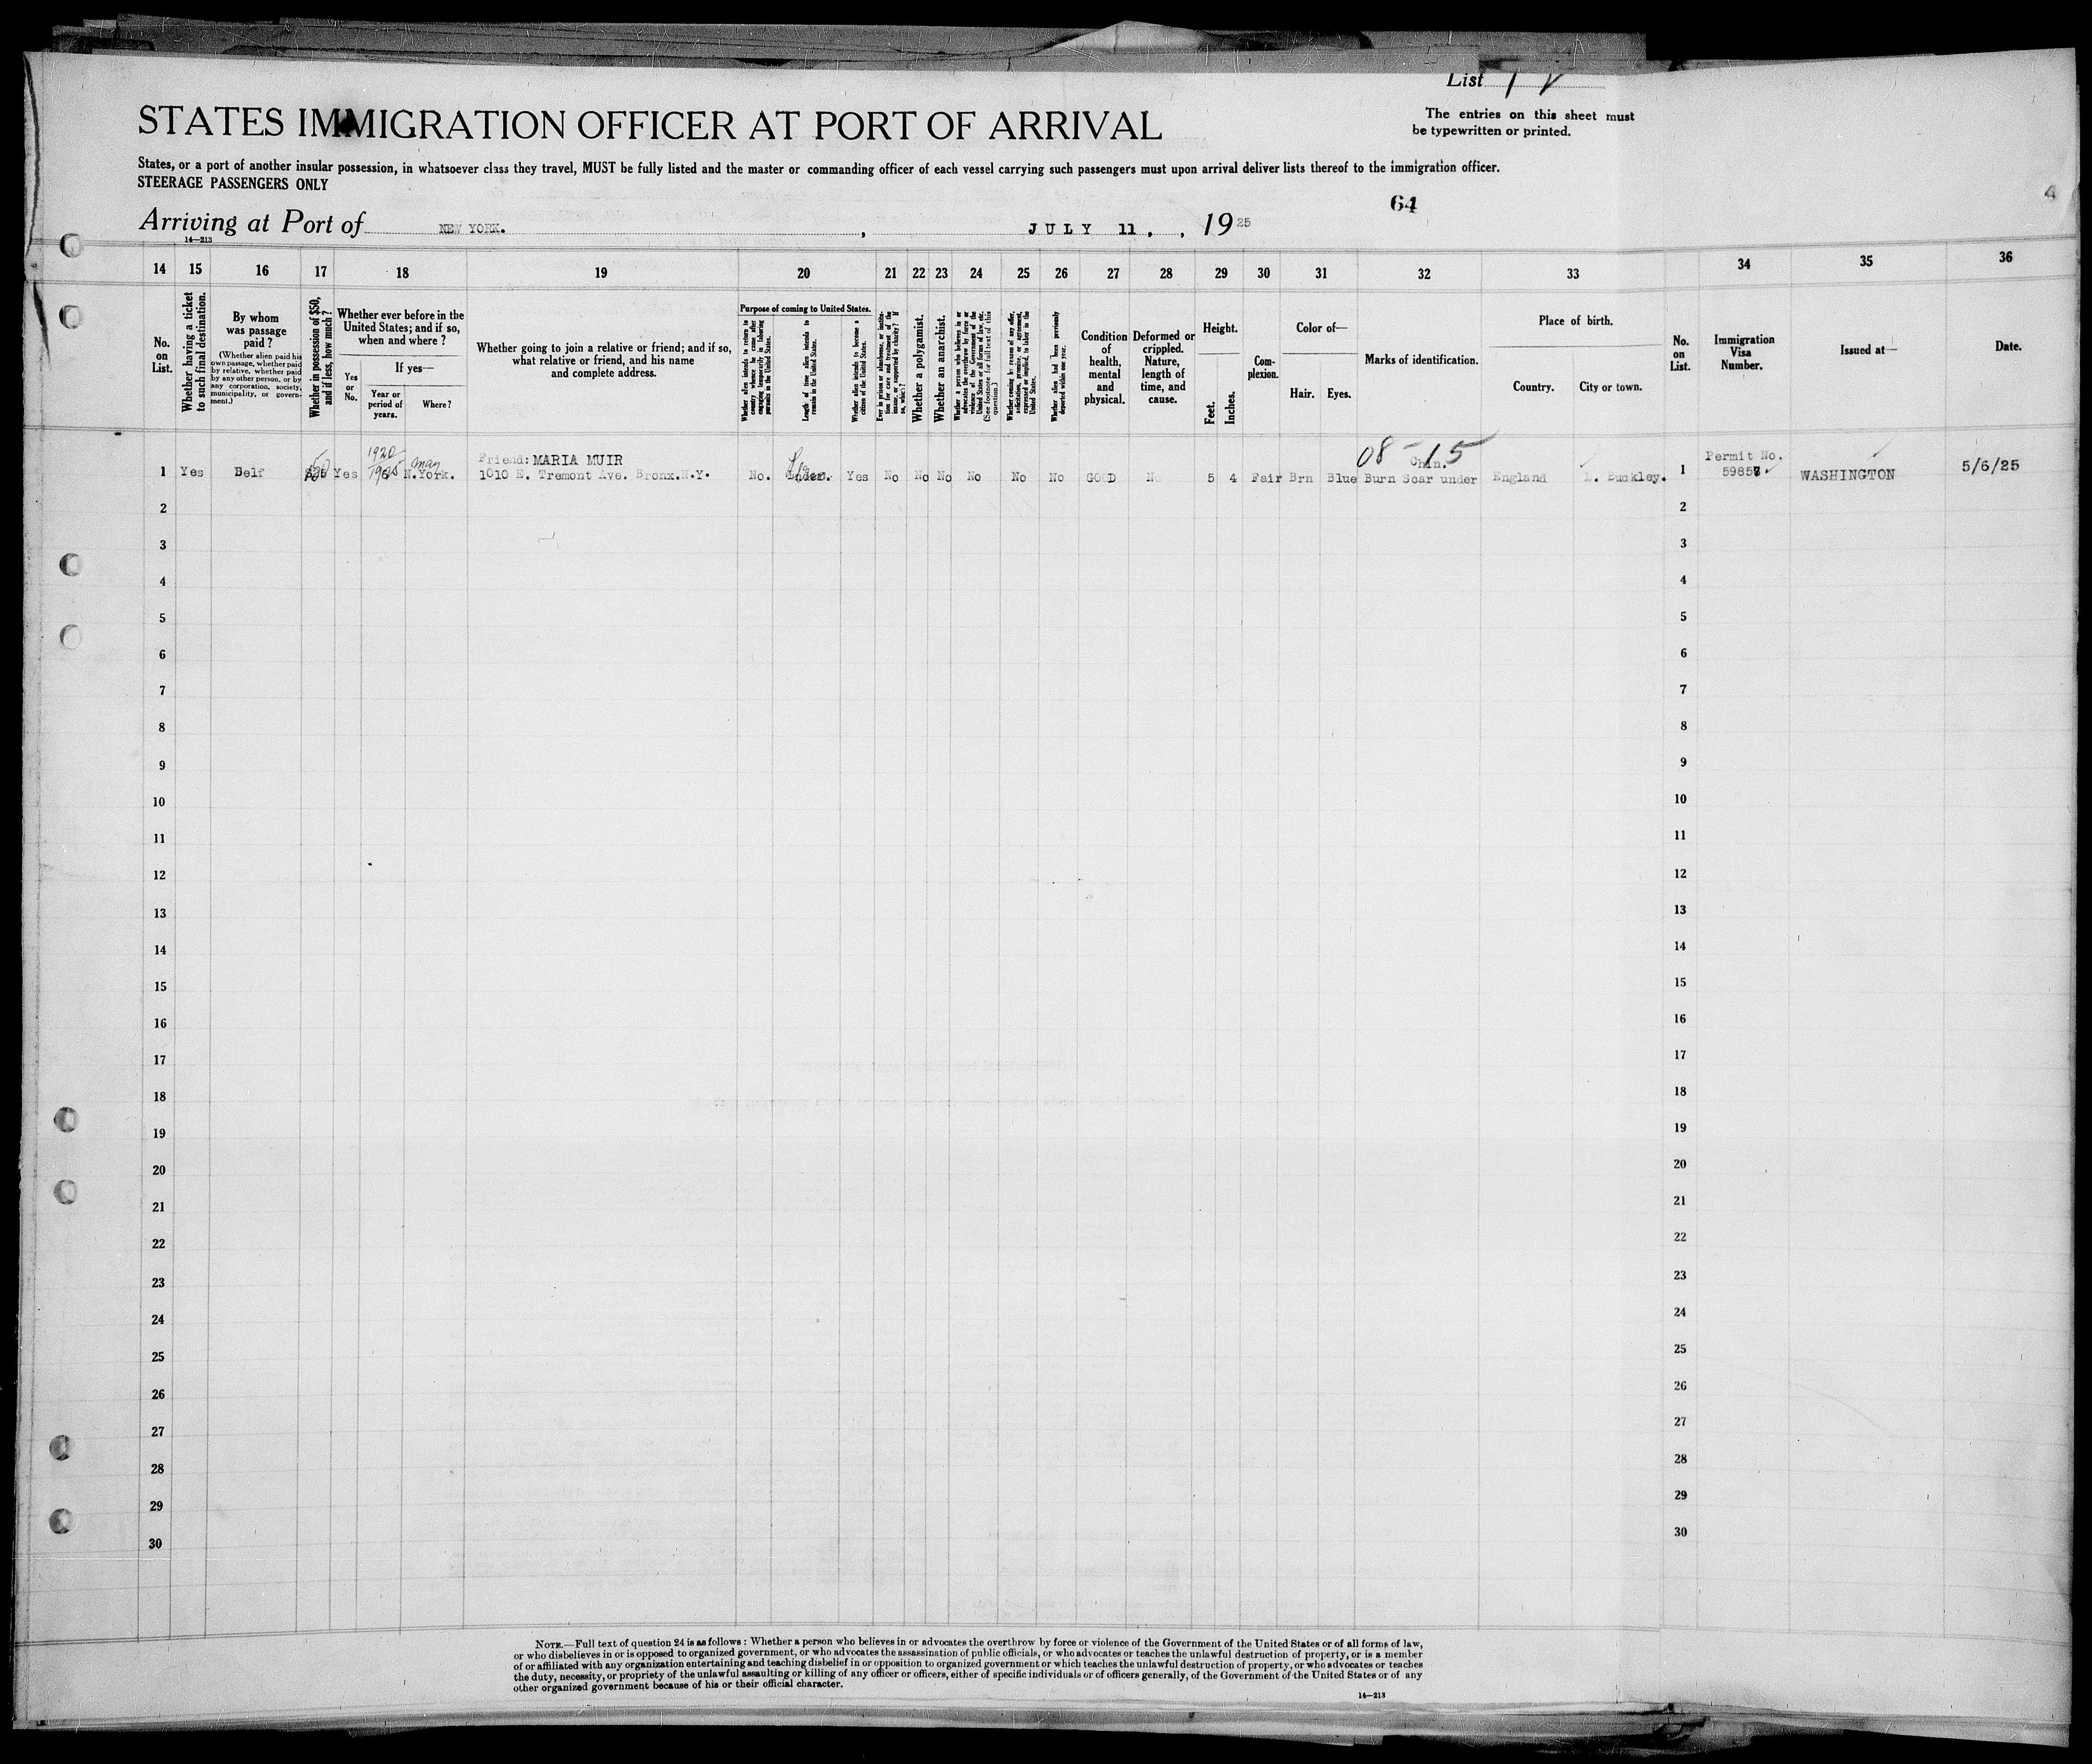 List 1
STATES IMMIGRATION OFFICER AT PORT OF ARRIVAL
The entries on this sheet must
be typewritten or printed.
States, or a port of another insular possession, in whatsoever class they travel, MUST be fully listed and the master or commanding officer of each vessel carrying such passengers must upon arrival deliver lists thereof to the immigration officer.
STEERAGE PASSENGERS ONLY
64
4
Arriving at Port of NEW YORK. , JULY 11, , 1925
14—213
14 15 16 17 18 19 20 21 22 23 24 25 26 27 28 29 30 31 32 33 34 35 36
No. on List.
Whether having a ticket to such final destination.
By whom was passage paid?
(Whether alien paid his own passage, whether paid by relative, whether paid by any other person, or by any corporation, society, municipality, or government.)
Whether in possession of $50, and if less, how much?
Whether ever before in the United States; and if so, when and where?
Yes or No.
If yes—
Year or period of years.
Where?
Whether going to join a relative or friend; and if so, what relative or friend, and his name and complete address.
Purpose of coming to United States.
Whether alien intends to return to country whence he came after engaging temporarily in laboring pursuits in the United States.
Length of time alien intends to remain in the United States.
Whether alien intends to become a citizen of the United States.
Ever in prison or almshouse, or institution for care and treatment of the insane, or supported by charity? If so, which?
Whether a polygamist.
Whether an anarchist.
Whether a person who believes in or advocates the overthrow by force or violence of the Government of the United States or all forms of law, etc. (See footnote for full text of this question.)
Whether coming by reason of any offer, solicitation, promise, or agreement, expressed or implied, to labor in the United States.
Whether alien had been previously deported within one year.
Condition of health, mental and physical.
Deformed or crippled. Nature, length of time, and cause.
Height.
Feet.
Inches.
Complexion.
Color of—
Hair.
Eyes.
Marks of identification.
Place of birth.
Country.
City or town.
No. on List.
Immigration Visa Number.
Issued at—
Date.
1920 May Friend: MARIA MUIR 08-15 Chin. Permit No.
1 Yes Self 50 Yes 1925 N.York. 1010 E. Tremont Ave. Bronx.N.Y. No. Yes No No No No No No GOOD No 5 4 Fair Brn Blue Burn Scar under England Buckley. 1 59857 WASHINGTON 5/6/25
2 2
3 3
4 4
5 5
6 6
7 7
8 8
9 9
10 10
11 11
12 12
13 13
14 14
15 15
16 16
17 17
18 18
19 19
20 20
21 21
22 22
23 23
24 24
25 25
26 26
27 27
28 28
29 29
30 30
NOTE.—Full text of question 24 is as follows: Whether a person who believes in or advocates the overthrow by force or violence of the Government of the United States or of all forms of law,
or who disbelieves in or is opposed to organized government, or who advocates the assassination of public officials, or who advocates or teaches the unlawful destruction of property, or is a member
of or affiliated with any organization entertaining and teaching disbelief in or opposition to organized government or which teaches the unlawful destruction of property, or who advocates or teaches
the duty, necessity, or propriety of the unlawful assaulting or killing of any officer or officers, either of specific individuals or of officers generally, of the Government of the United States or of any
other organized government because of his or their official character.
14—213